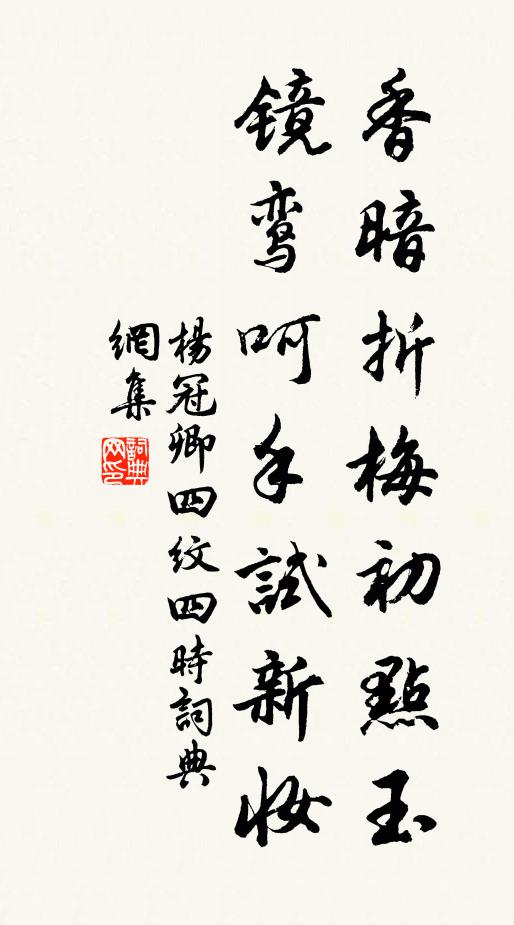 香暗折梅初點玉
镜鸾呵手試新妆
楊冠卿四纹四時詞典
網集
詞典
网印